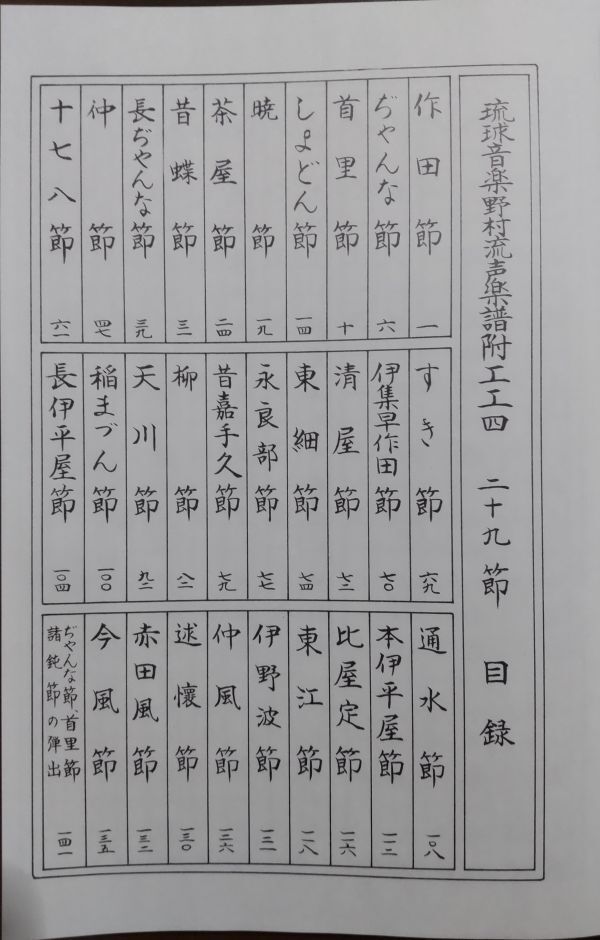 琉球音楽野村流声楽譜附工工四 二十九節 目録
作田節 一
ぢゃんな節 六
首里節 十
しよどん節 一四
暁節 一九
茶屋節 二四
昔蝶節 三一
長ぢゃんな節 三九
仲節 四七
十七八節 六一
すき節 六九
伊集早作田節 七〇
清屋節 七二
東細節 七四
永良部節 七七
昔嘉手久節 七九
柳節 八二
天川節 九二
稲まづん節 一〇〇
長伊平屋節 一〇四
通水節 一〇八
本伊平屋節 一一二
比屋定節 一一六
東江節 一一八
伊野波節 一二一
仲風節 一二六
述懐節 一三〇
赤田風節 一三二
今風節 一三五
ぢゃんな節、首里節
諸鈍節の弾出 一四一